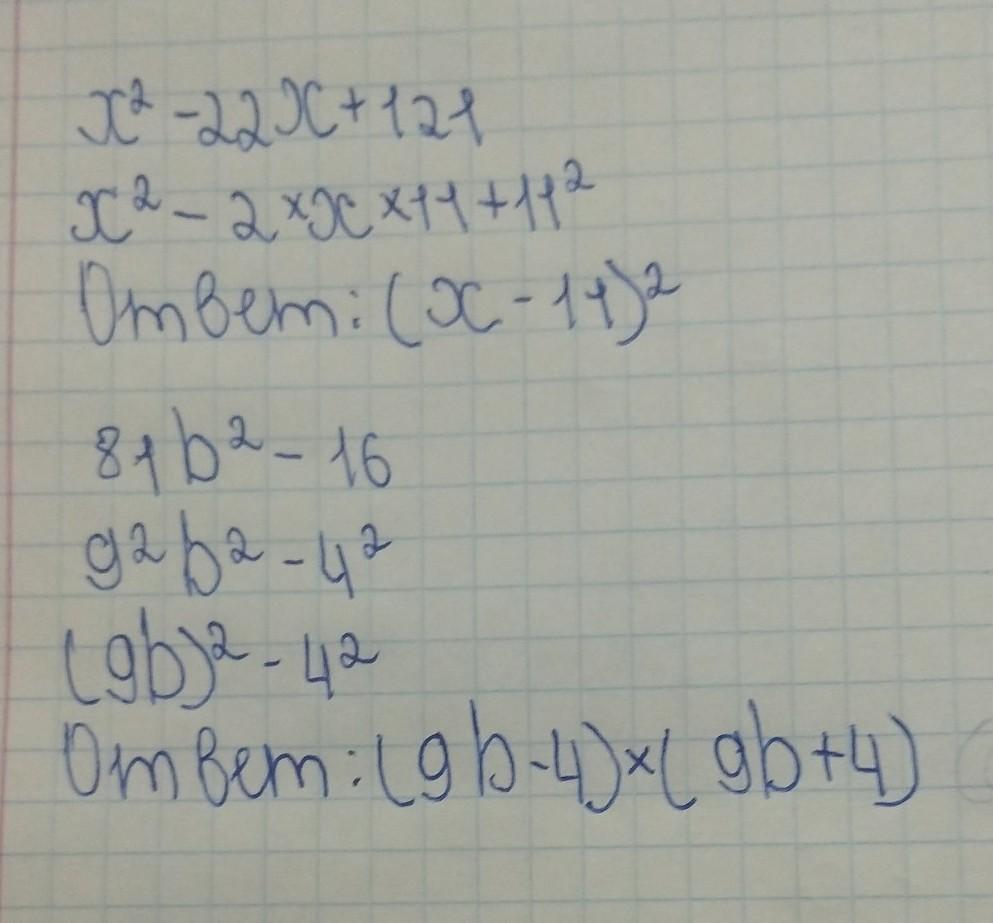 x² - 22x + 121
x² - 2 × x × 11 + 11²
Ответ: (x - 11)²
81b² - 16
9²b² - 4²
(9b)² - 4²
Ответ: (9b - 4) × (9b + 4)